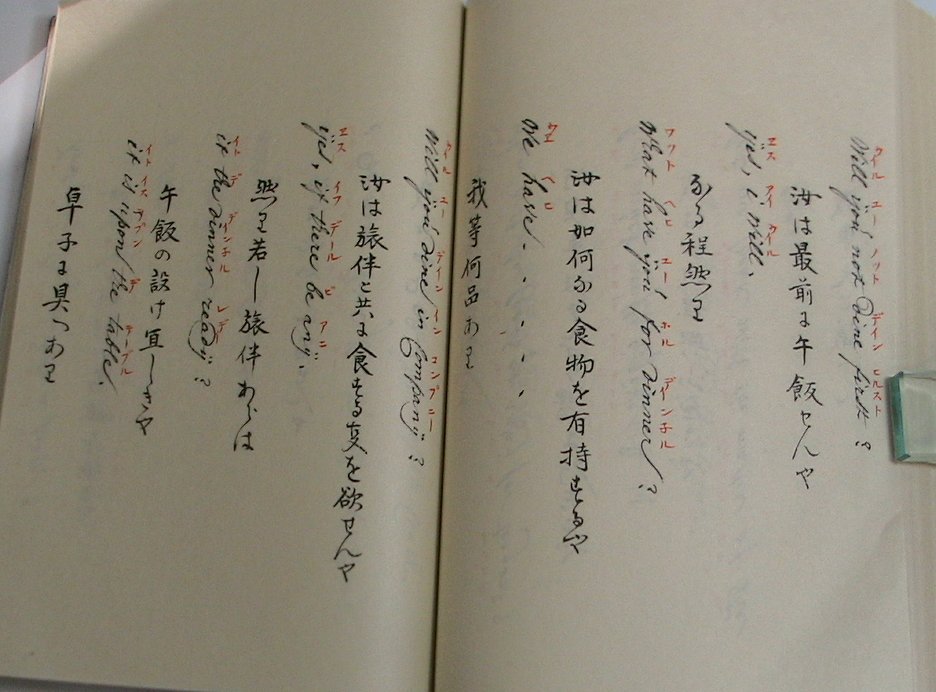 ウイル ユー ノット デイン ヒルスト
Will you not dine first?
汝は最前に午飯せんや
エス アイ ウイル
yes, i will.
なる程然り
フワット ヘビ ユー ホル デインチル
What have you for dinner?
汝は如何なる食物を有持するや
ウエ ヘビ
We have. . . . .
我等何品あり
ウイル ユー デイン イン コンプニー
Will you dine in Company?
汝は旅伴と共に食する事を欲せんや
エス イフ デール ビ アニ
yes, if there be any.
然り若し旅伴あらは
イト デ デインチル レデー
it the dinner ready?
午飯の設け宜しきや
イト イス アプン デ テーブル
it is upon the table.
卓子に具つあり